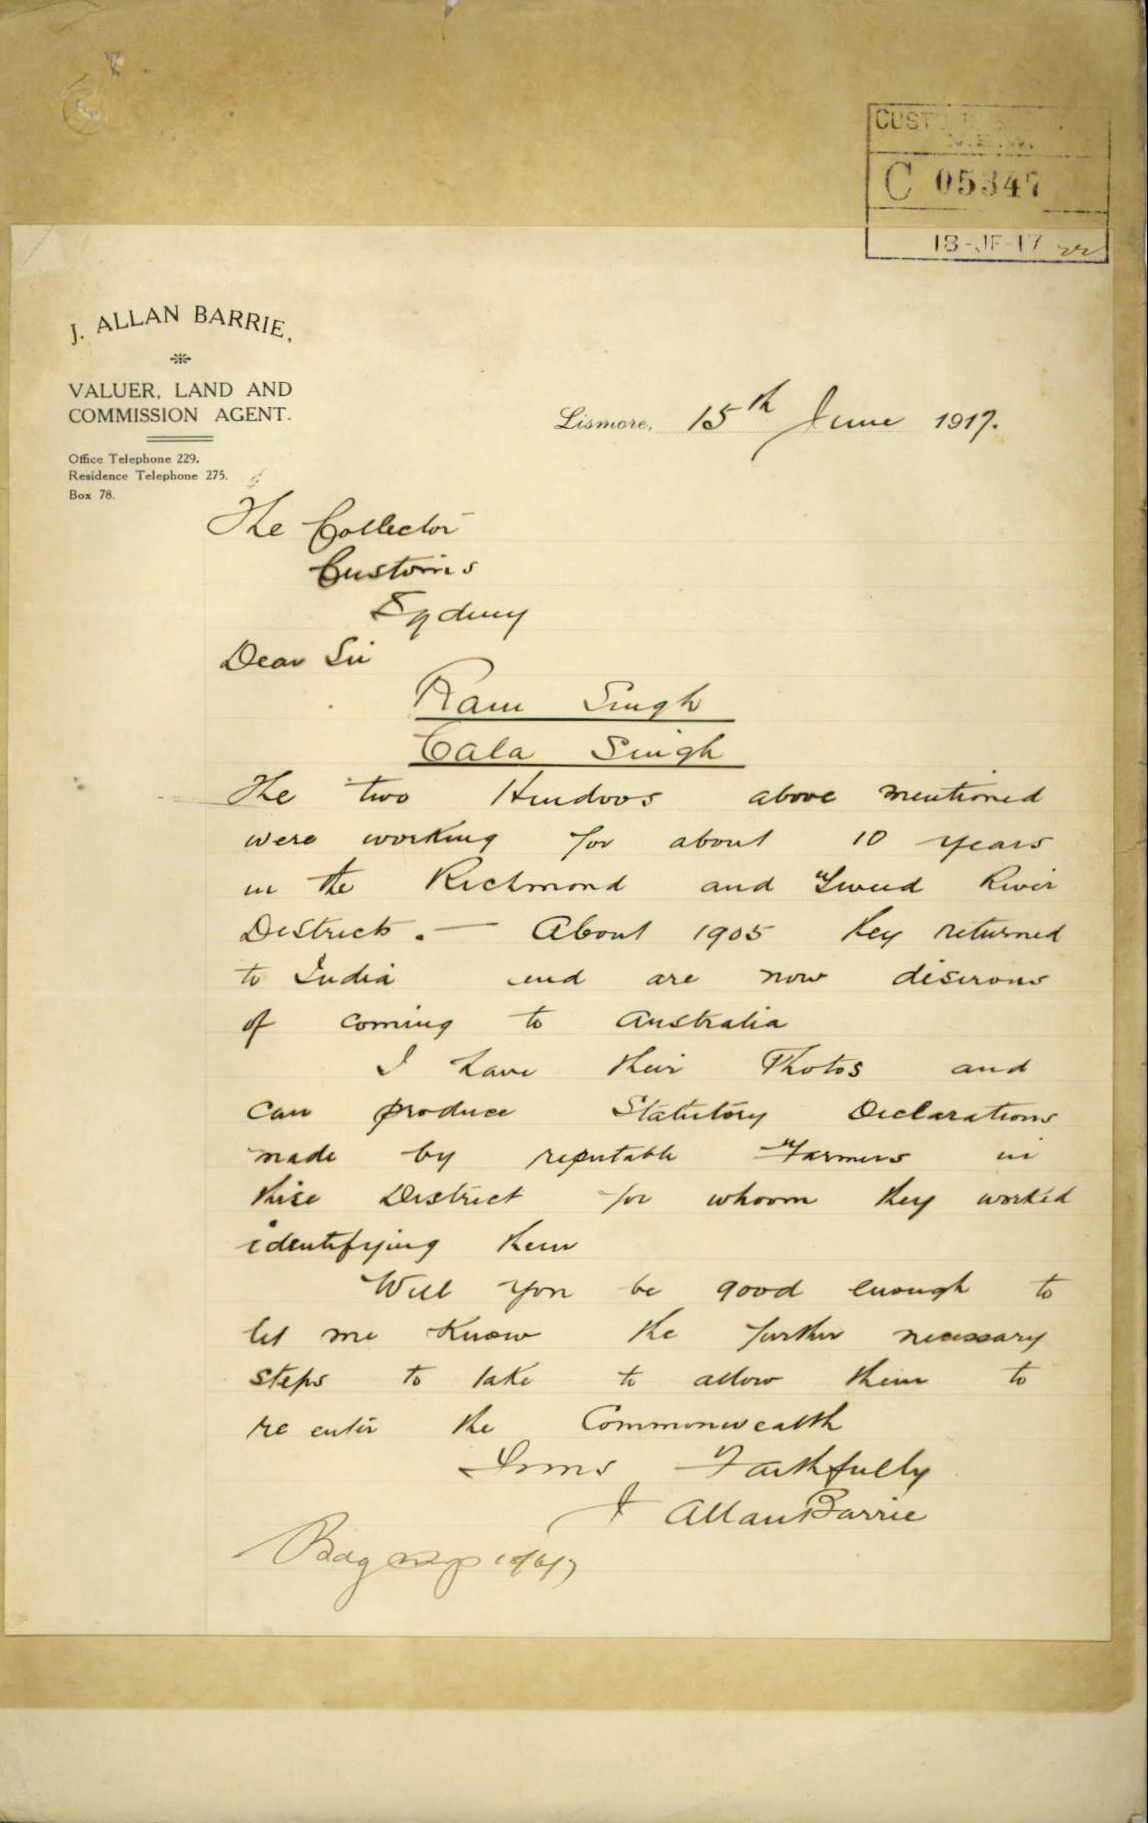 C 05347
18-JE-17
J. ALLAN BARRIE,
VALUER, LAND AND
COMMISSION AGENT.
Office Telephone 229.
Residence Telephone 275.
Box 78.
Lismore, 15th June 1917.
The Collector
Customs
Sydney
Dear Sir
Ram Singh
Cala Singh
The two Hindoos above mentioned
were working for about 10 years
in the Richmond and Tweed River
Districts. — About 1905 they returned
to India and are now desirous
of coming to Australia
I have their Photos and
can produce Statutory Declarations
made by reputable Farmers in
these District for whoom they worked
identifying them
Will you be good enough to
let me know the further necessary
steps to take to allow them to
re enter the Commonwealth
Yours Faithfully
J Allan Barrie